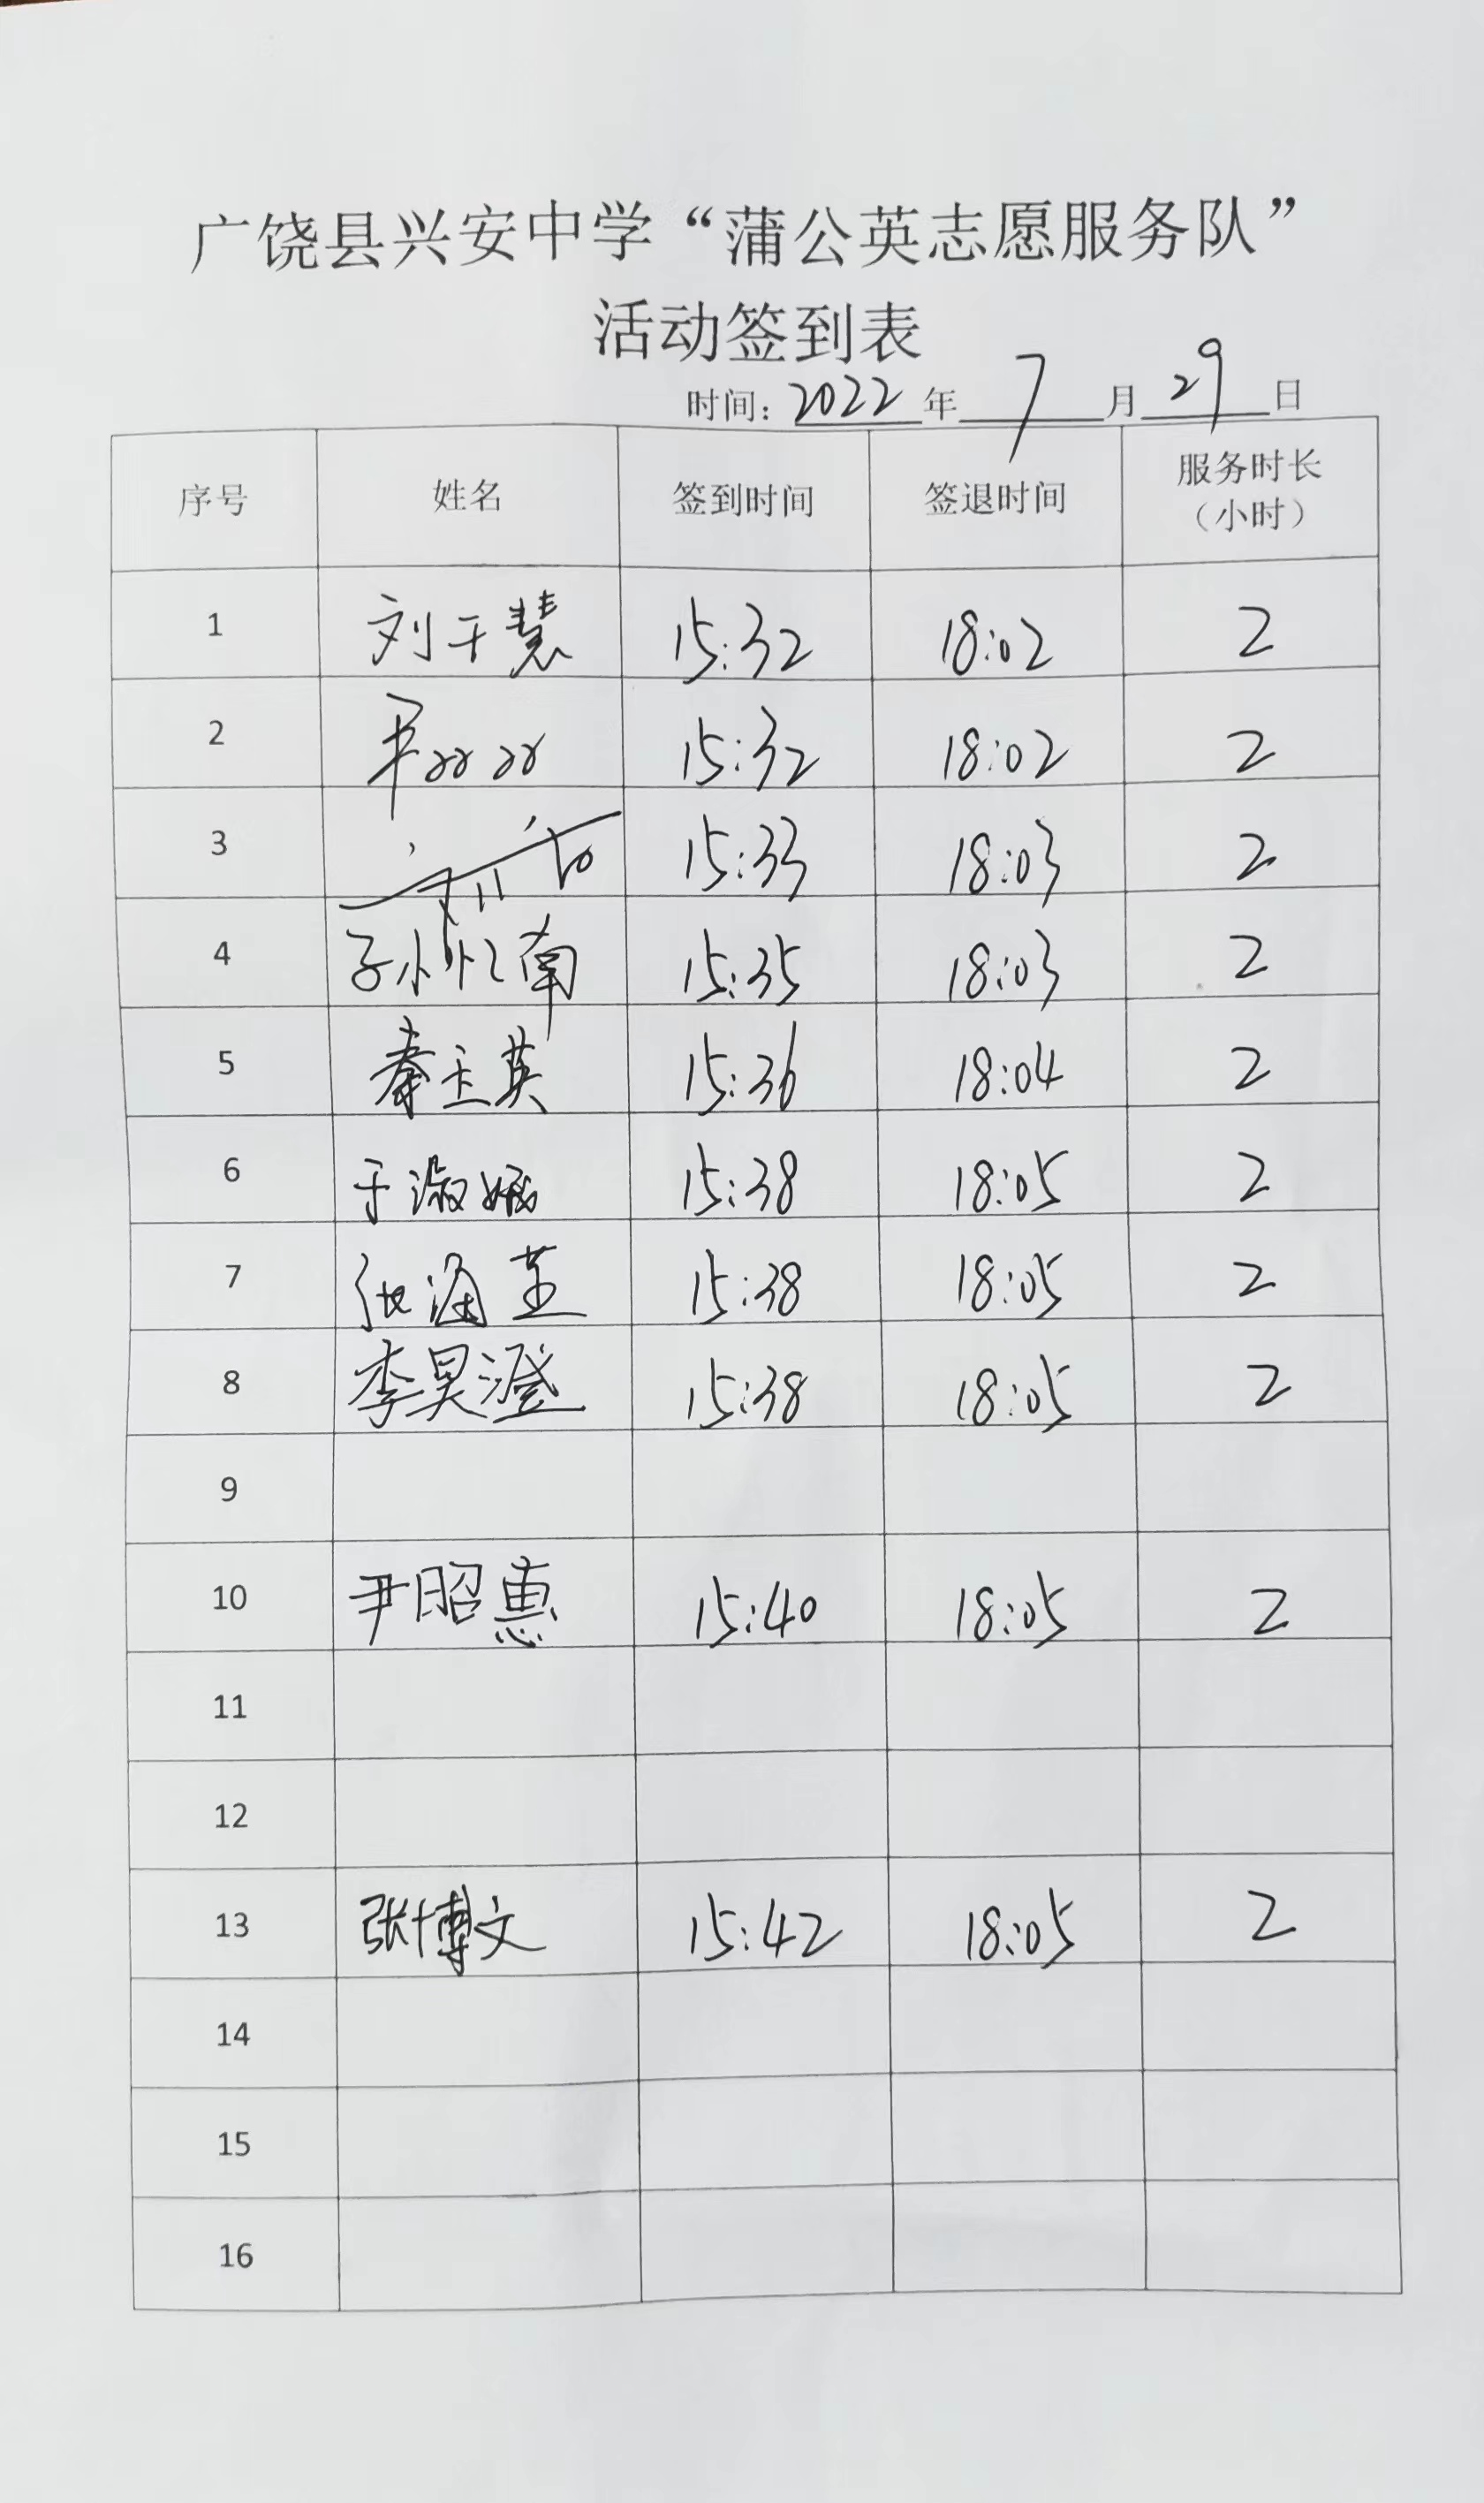 广饶县兴安中学“蒲公英志愿服务队”
活动签到表
时间：2022年7月29日
序号 姓名 签到时间 签退时间 服务时长（小时）
1 刘干慧 15:32 18:02 2
2 15:32 18:02 2
3 15:33 18:03 2
4 孙忆南 15:35 18:03 2
5 秦玉英 15:36 18:04 2
6 于淑娥 15:38 18:05 2
7 张海燕 15:38 18:05 2
8 李昊澄 15:38 18:05 2
9
10 尹昭惠 15:40 18:05 2
11
12
13 张博文 15:42 18:05 2
14
15
16